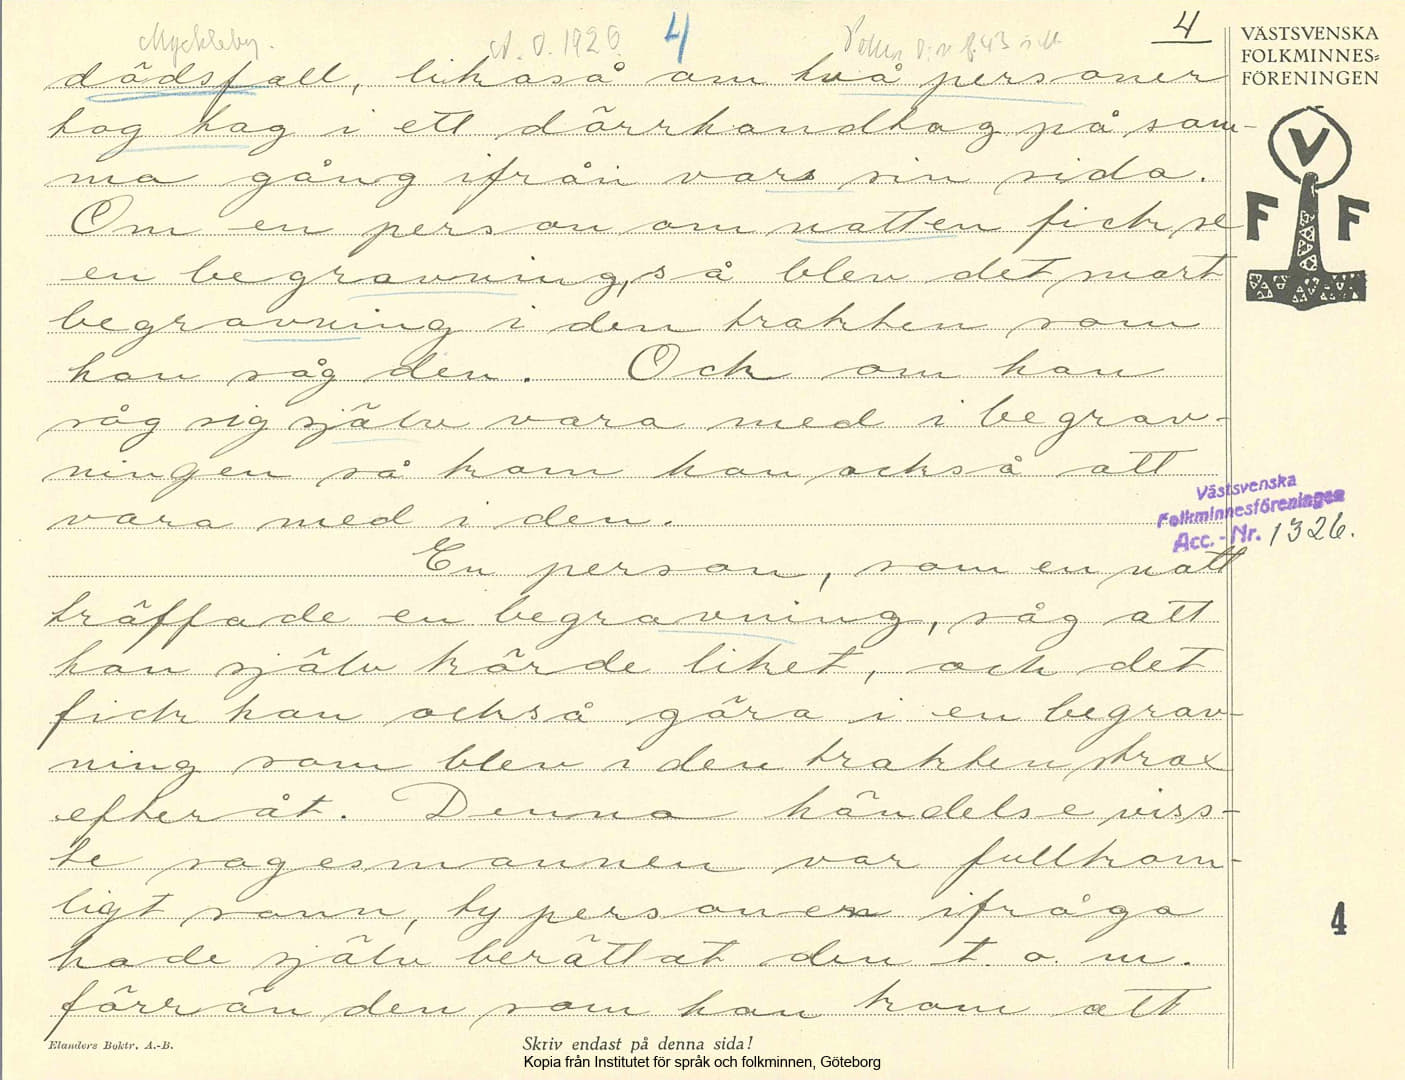 Myckleby.
A. O. 1926.
4
4
VÄSTSVENSKA
FOLKMINNES=
FÖRENINGEN
V
F F
dödsfall, likaså om två personer
tog tag i ett dörrhandtag på sam-
ma gång ifrån vars sin sida.
Om en person om natten fick se
en begravning, så blev det snart
begravning i den trakten som
han såg den. Och om han
såg sig själv vara med i begrav-
ningen så kom han också att
vara med i den.
Västsvenska
Folkminnesföreningen
Acc.-Nr. 1326.
En person, som en natt
träffade en begravning, såg att
han själv körde liket, och det
fick han också göra i en begrav-
ning som blev i den trakten strax
efteråt. Denna händelse viss-
te sagesmannen var fullkom-
ligt sann, ty personen ifråga
hade själv berättat den t. o. m.
förrän den som han kom att
4
Elanders Boktr. A.-B.
Skriv endast på denna sida!
Kopia från Institutet för språk och folkminnen, Göteborg